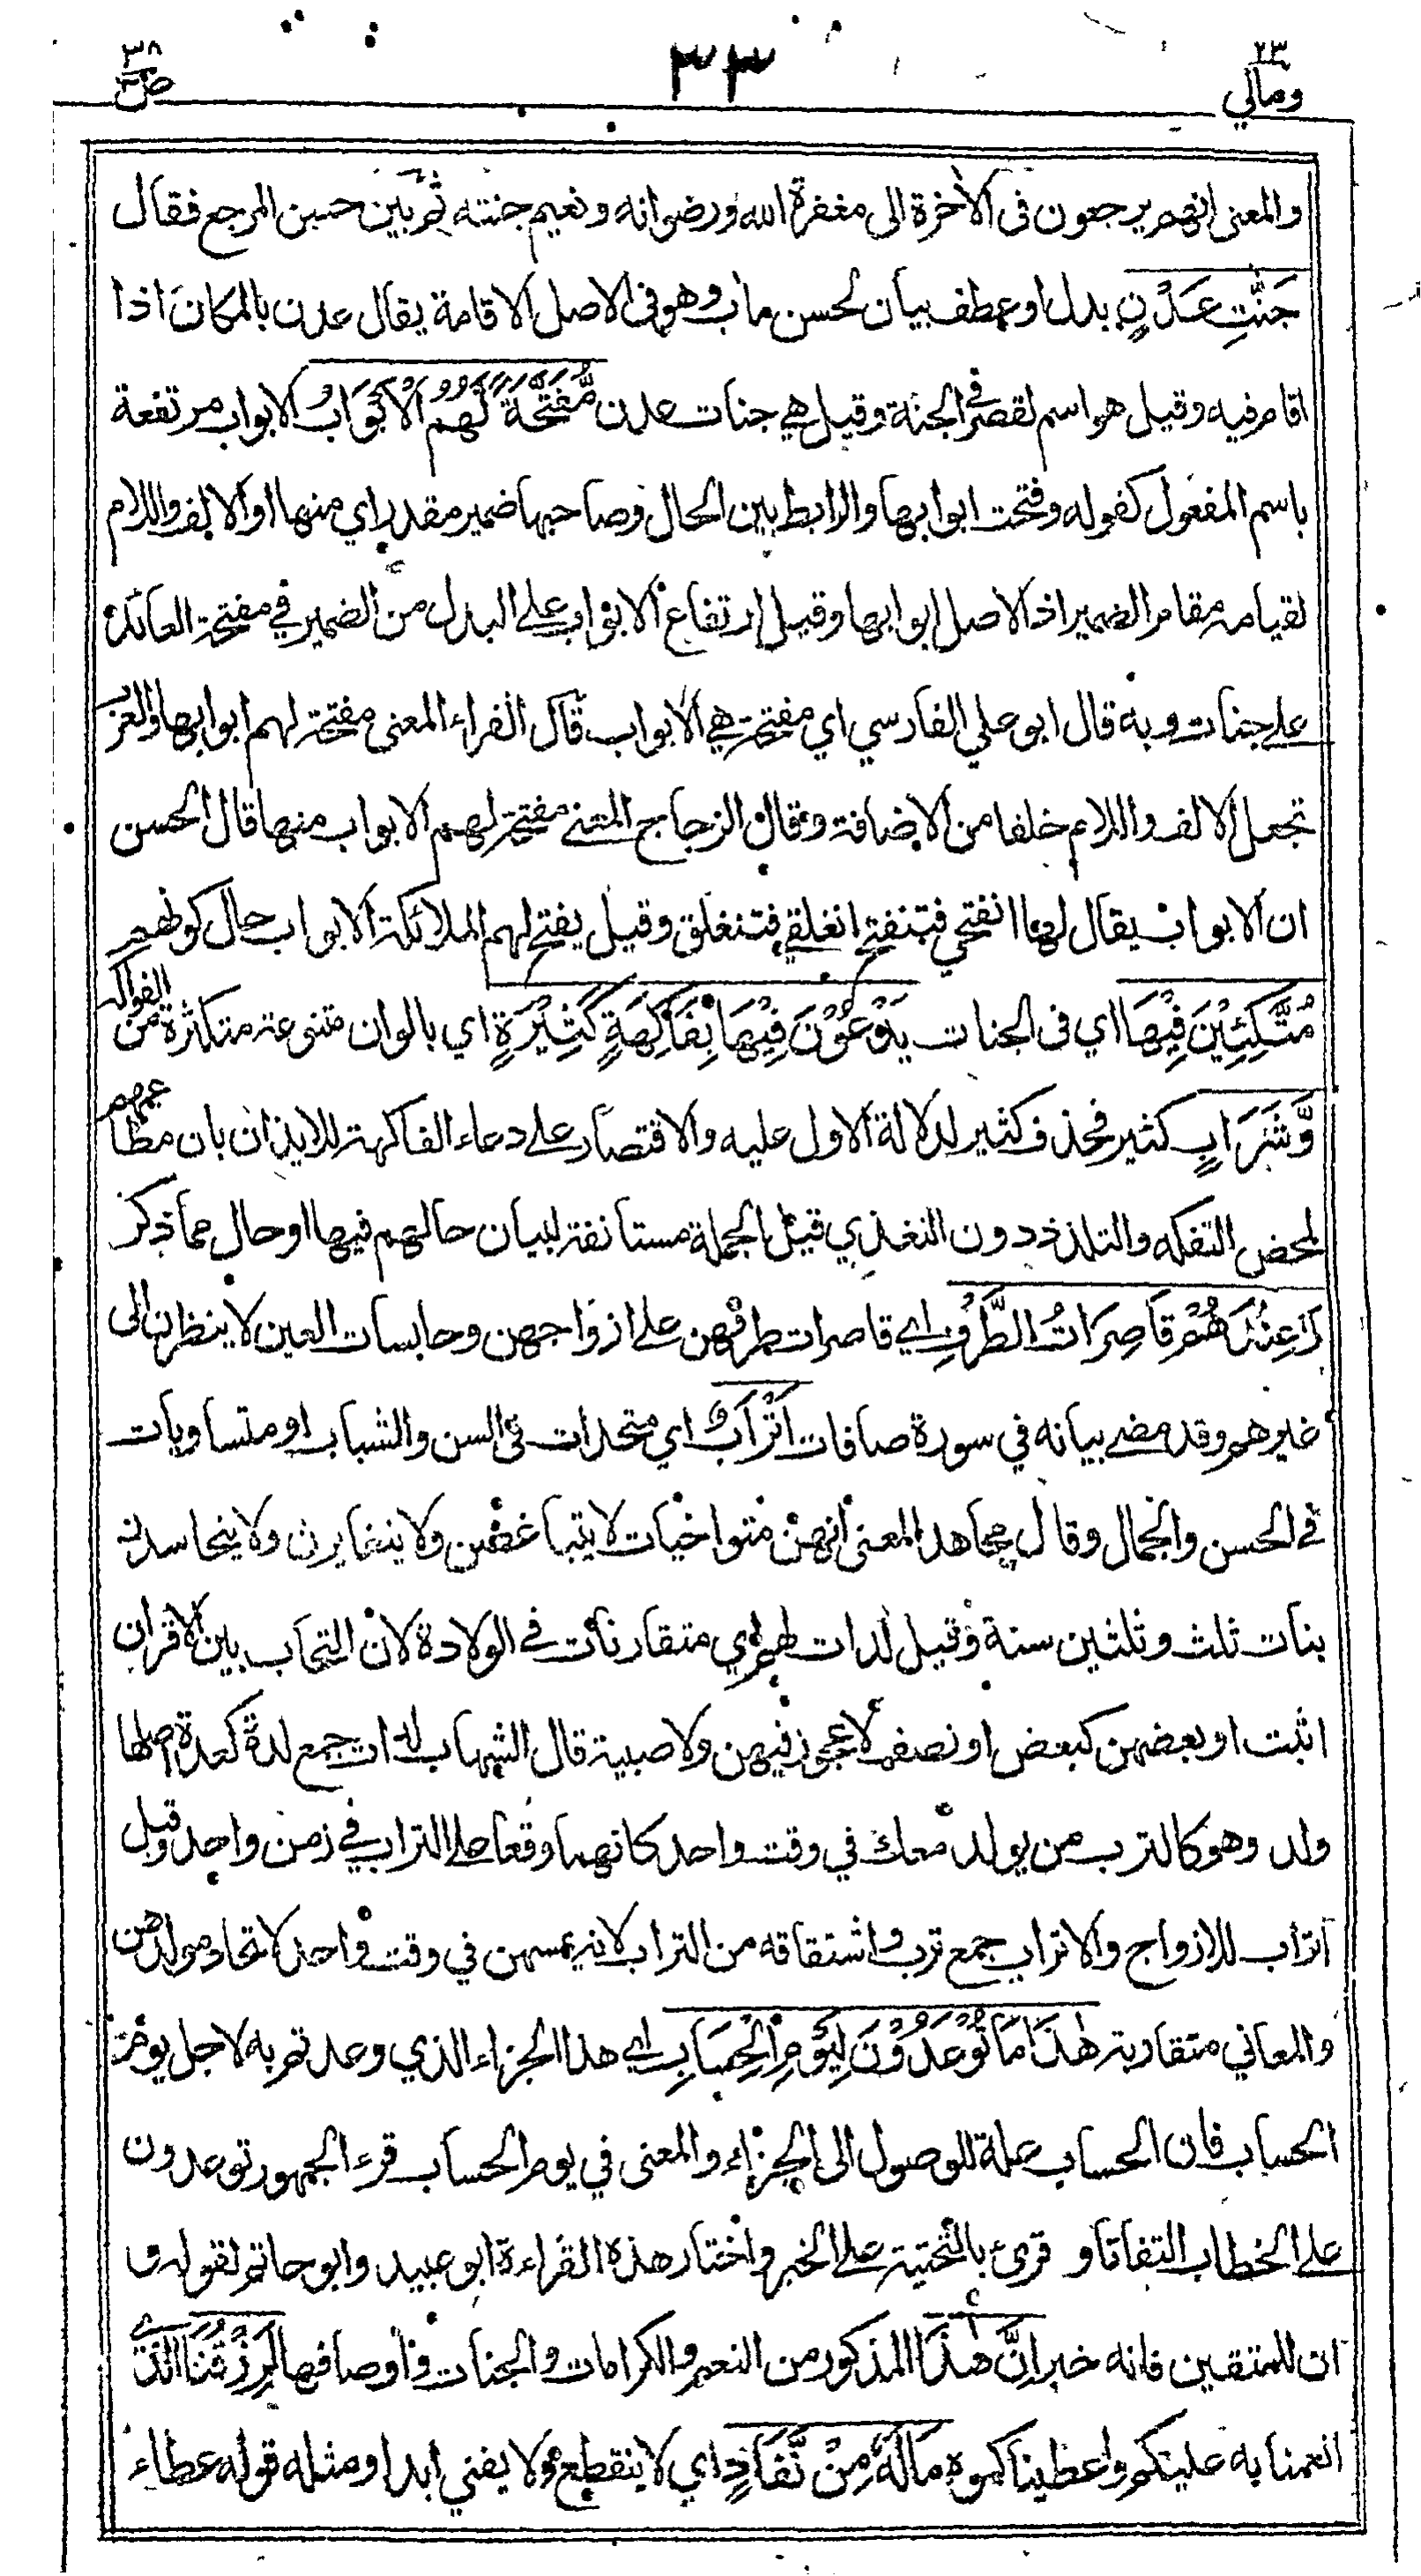 ٢٣ ومالي ٣٣ ٣٨ ص
والمعنى انهم يرجعون فى الآخرة الى مغفرة الله ورضوانه ونعيم جنته ثم بين حسن المرجع فقال
جَنّٰتِ عَدْنٍ بدل او عطف بيان لحسن مآب وهو فى الاصل الاقامة يقال عدن بالمكان اذا
اقام فيه وقيل هو اسم لقصر فى الجنة وقيل هي جنات عدن مُّفَتَّحَةً لَّهُمُ الْاَبْوَابُ الابواب مرتفعة
باسم المفعول كقوله وفتحت ابوابها والرابط بين الحال وصاحبها ضمير مقدر اي منها او الالف واللام
لقيامه مقام الضمير اذ الاصل ابوابها وقيل ارتفاع الابواب على البدل من الضمير في مفتحة العائد
على جنات وبه قال ابو علي الفارسي اي مفتحة هي الابواب قال الفراء المعنى مفتحة لهم ابوابها والعرب
تجعل الالف واللام خلفا من الاضافة وقال الزجاج المعنى مفتحة لهم الابواب منها قال الحسن
ان الابواب يقال لها انفتحي فتنفتح انغلقي فتنغلق وقيل يفتح لهم الملائكة الابواب حال كونهم
مُتَّكِئِيْنَ فِيْهَا اي فى الجنات يَدْعُوْنَ فِيْهَا بِفَاكِهَةٍ كَثِيْرَةٍ اي بالوان متنوعة متكاثرة من الفواكه
وَّشَرَابٍ كثير فحذف كثير لدلالة الاول عليه والاقتصار على دعاء الفاكهة للايذان بان مطاعمهم
لمحض التفكه والتلذذ دون التغذي قيل الجملة مستانفة لبيان حالهم فيها او حال مما ذكر
وَعِنْدَهُمْ قَاصِرَاتُ الطَّرْفِ اي قاصرات طرفهن على ازواجهن وحابسات العين لا ينظرن الى
غيرهم وقد مضى بيانه في سورة صافات اَتْرَابٌ اي متحدات فى السن والشباب او متساويات
في الحسن والجمال وقال مجاهد المعنى انهن متواخيات لا يتباغضن ولا يتغايرن ولا يتحاسدن
بنات ثلث وثلثين سنة وقيل لدات لهم اي متقارنات في الولادة لان التحاب بين الاقران
اثبت او بعضهن كبعض او نصف لا عجوز فيهن ولا صبية قال الشهاب لدات جمع لدة كعدة اصلها
ولد وهو كالترب من يولد معك في وقت واحد كانهما وقعا على التراب في زمن واحد وقيل
اتراب للازواج والاتراب جمع ترب واشتقاقه من التراب لانه يمسهن في وقت واحد لاتحاد مولدهن
والمعاني متقاربة هٰذَا مَا تُوْعَدُوْنَ لِيَوْمِ الْحِسَابِ اي هذا الجزاء الذي وعدتم به لاجل يوم
الحساب فان الحساب علة للوصول الى الجزاء والمعنى في يوم الحساب قرء الجمهور توعدون
على الخطاب التفاتا و قرئ بالتحتية على الخبر واختار هذه القراءة ابو عبيد وابو حاتم لقوله و
ان للمتقين فانه خبر اِنَّ هٰذَا المذكور من النعم والكرامات والجنات واوصافها لَرِزْقُنَا الذي
انعمنا به عليكم واعطيناكموه مَا لَهٗ مِنْ نَّفَادٍ اي لا ينقطع ولا يفنى ابدا ومثله قوله عطاء